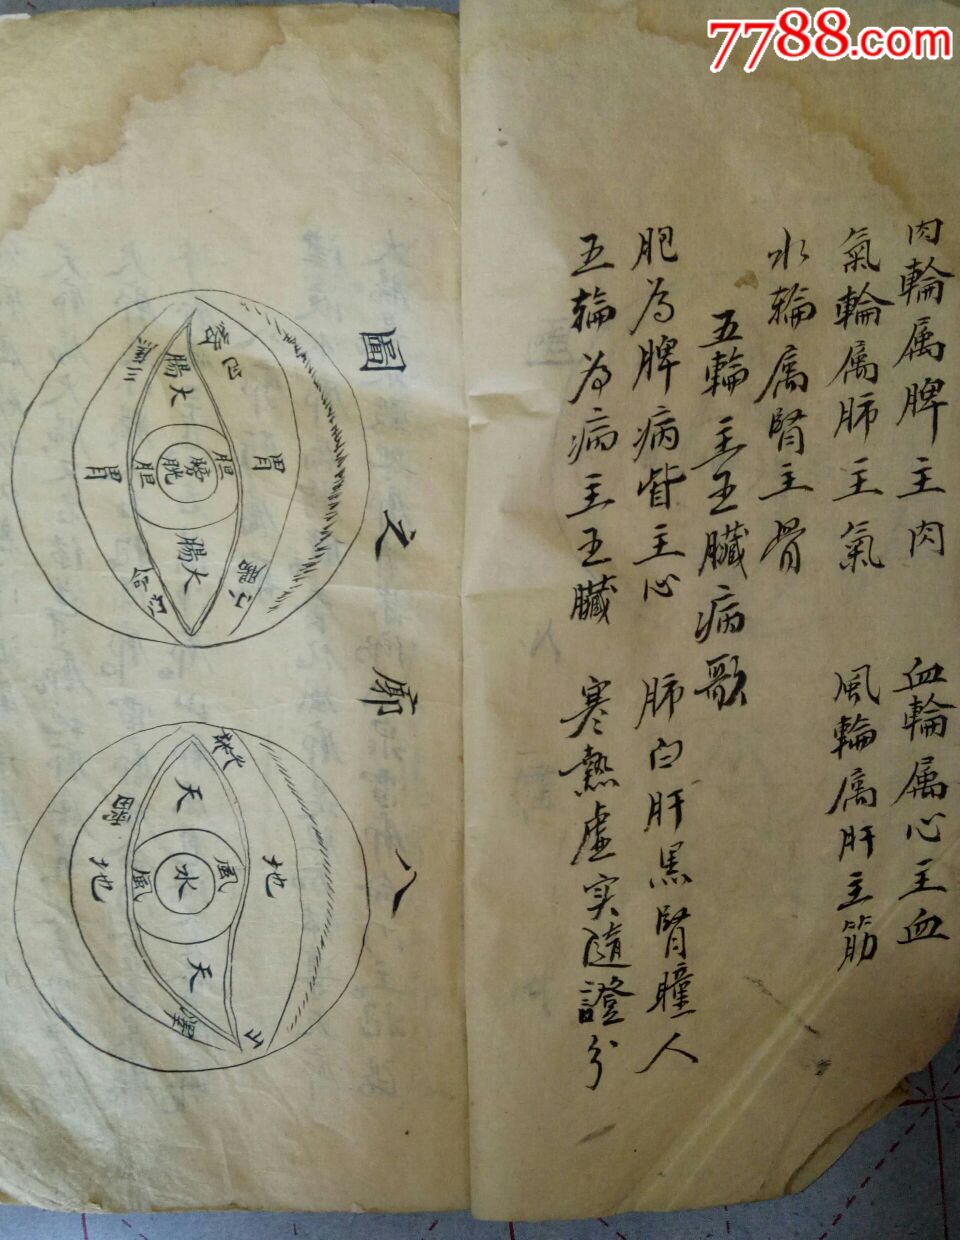 7788.com
肉輪属脾主肉 血輪属心主血
氣輪属肺主氣 風輪属肝主筋
水輪属腎主骨
五輪主五臟病歌
肥為脾病眥主心 肺白肝黑腎瞳人
五輪為病主五臟 寒熱虛实隨證分
八廓之圖
大腸
胃
胆
膀胱
胆
胃
大腸
天
地
風
水
風
地
天
山